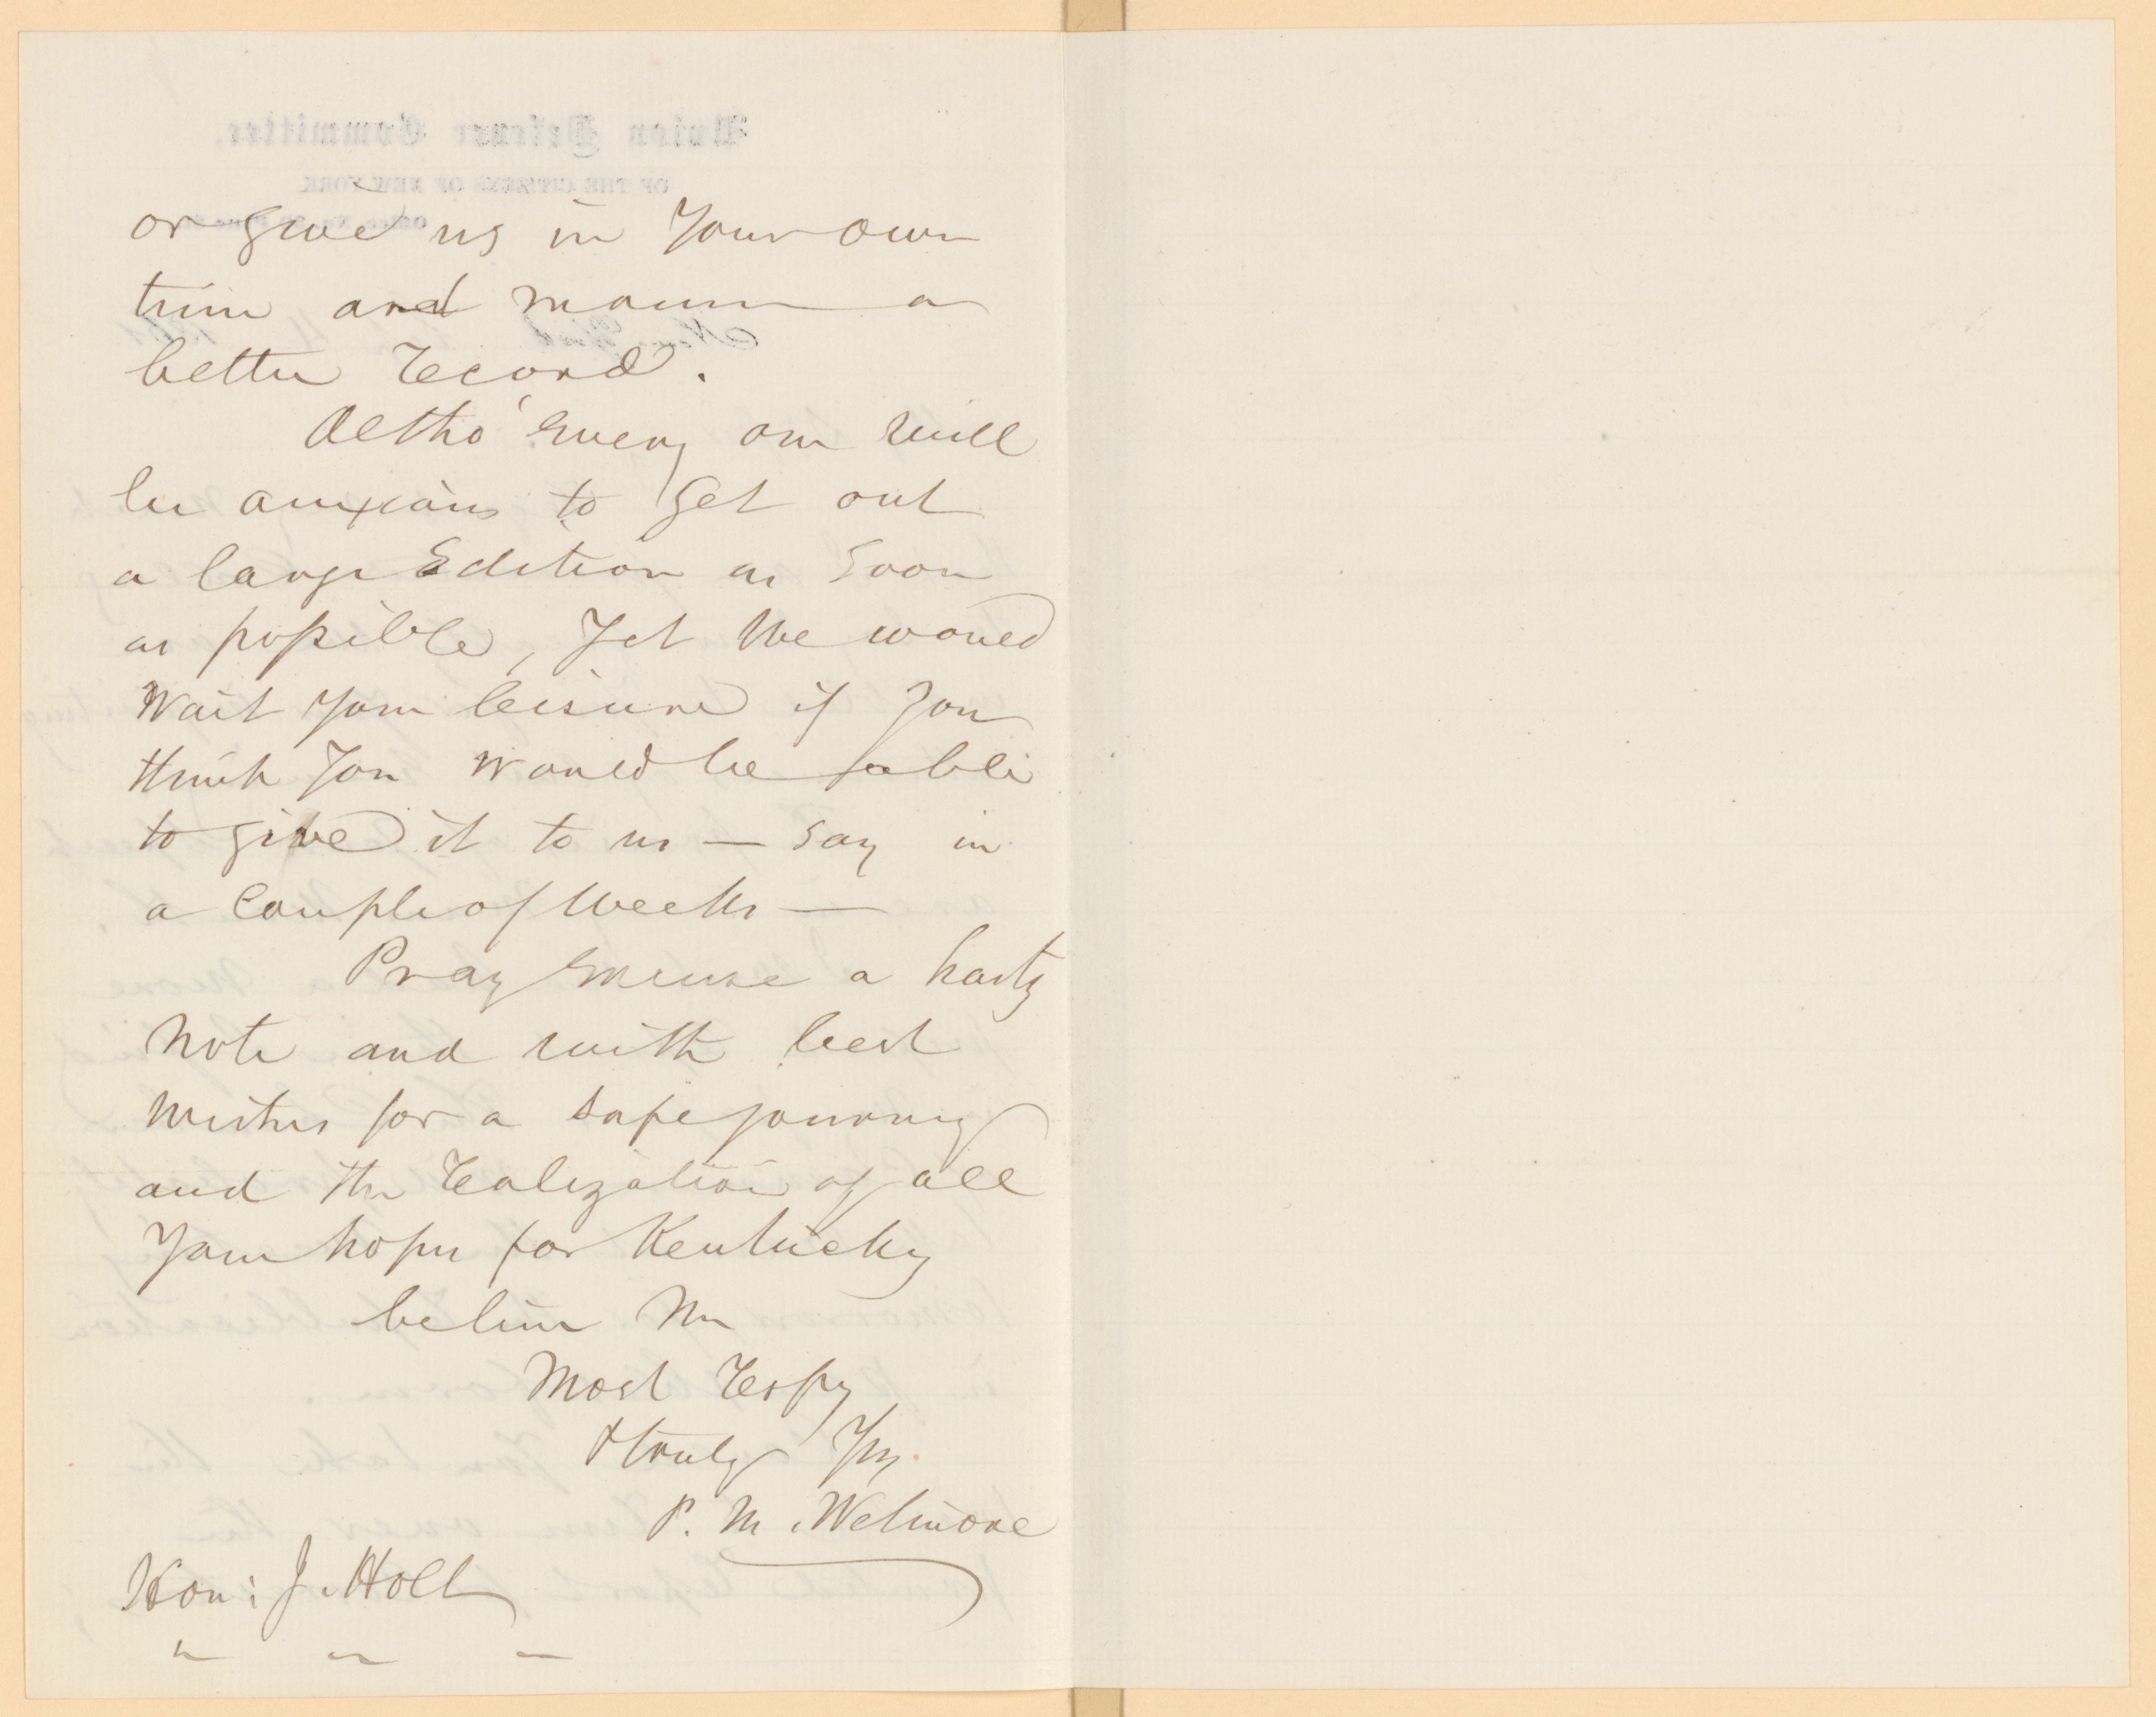 or give us in Your own
time and manner a
better record.
Altho' every one will
be anxious to get out
a large Edition as soon
as possible, Yet we would
Wait Your leisure if you
think You would be able
to give it to us — say in
a Couple of Weeks —
Pray excuse a hasty
Note and with best
wishes for a safe journey
and the realization of all
Your hopes for Kentucky
believe Me
Most respy
& truly Yrs
P. M. Wetmore
Hon: J. Holt
" " "
Union Defence Committee,
OF THE CITIZENS OF NEW YORK